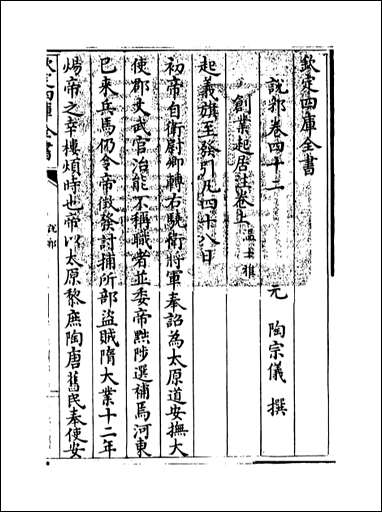 欽定四庫全書
說郛卷四十二
元 陶宗儀 撰
創業起居注卷上 溫大雅
起義旗至發引凡四十八日
初帝自衛尉卿轉右驍衛將軍奉詔為太原道安撫大
使郡文武官治能不稱職者並委帝黜陟選補焉河東
已來兵馬仍令帝徵發討捕所部盜賊隋大業十二年
煬帝之幸樓煩時也帝以太原黎庶陶唐舊民奉使安
欽定四庫全書
說郛